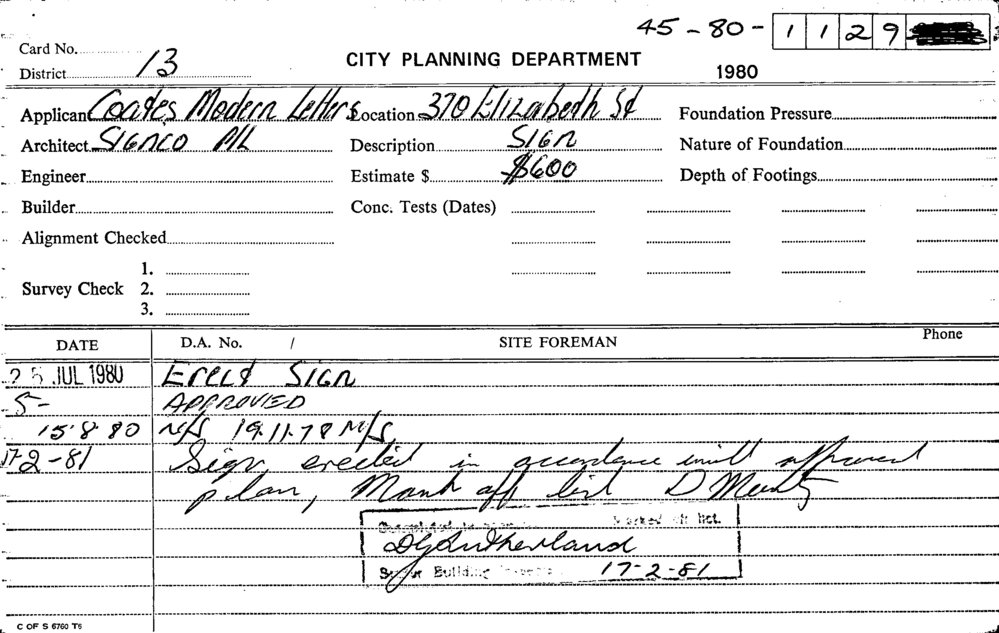 45-80-1129
Card No.
District 13
CITY PLANNING DEPARTMENT
1980
Applicant Coates Modern Letters Location 370 Elizabeth St Foundation Pressure
Architect Signco P/L Description Sign Nature of Foundation
Engineer Estimate $ $600 Depth of Footings
Builder Conc. Tests (Dates)
Alignment Checked
1.
Survey Check 2.
3.
DATE D.A. No. / SITE FOREMAN Phone
25 JUL 1980 Erect Sign
5- APPROVED
15·8·80 N/S 19.11.78 N/S
17-2-81 Sign erected in accordance with approved
plan, Mark off list D
Marked off list.
DG Sutherland
Building 17-2-81
C OF S 6760 T6